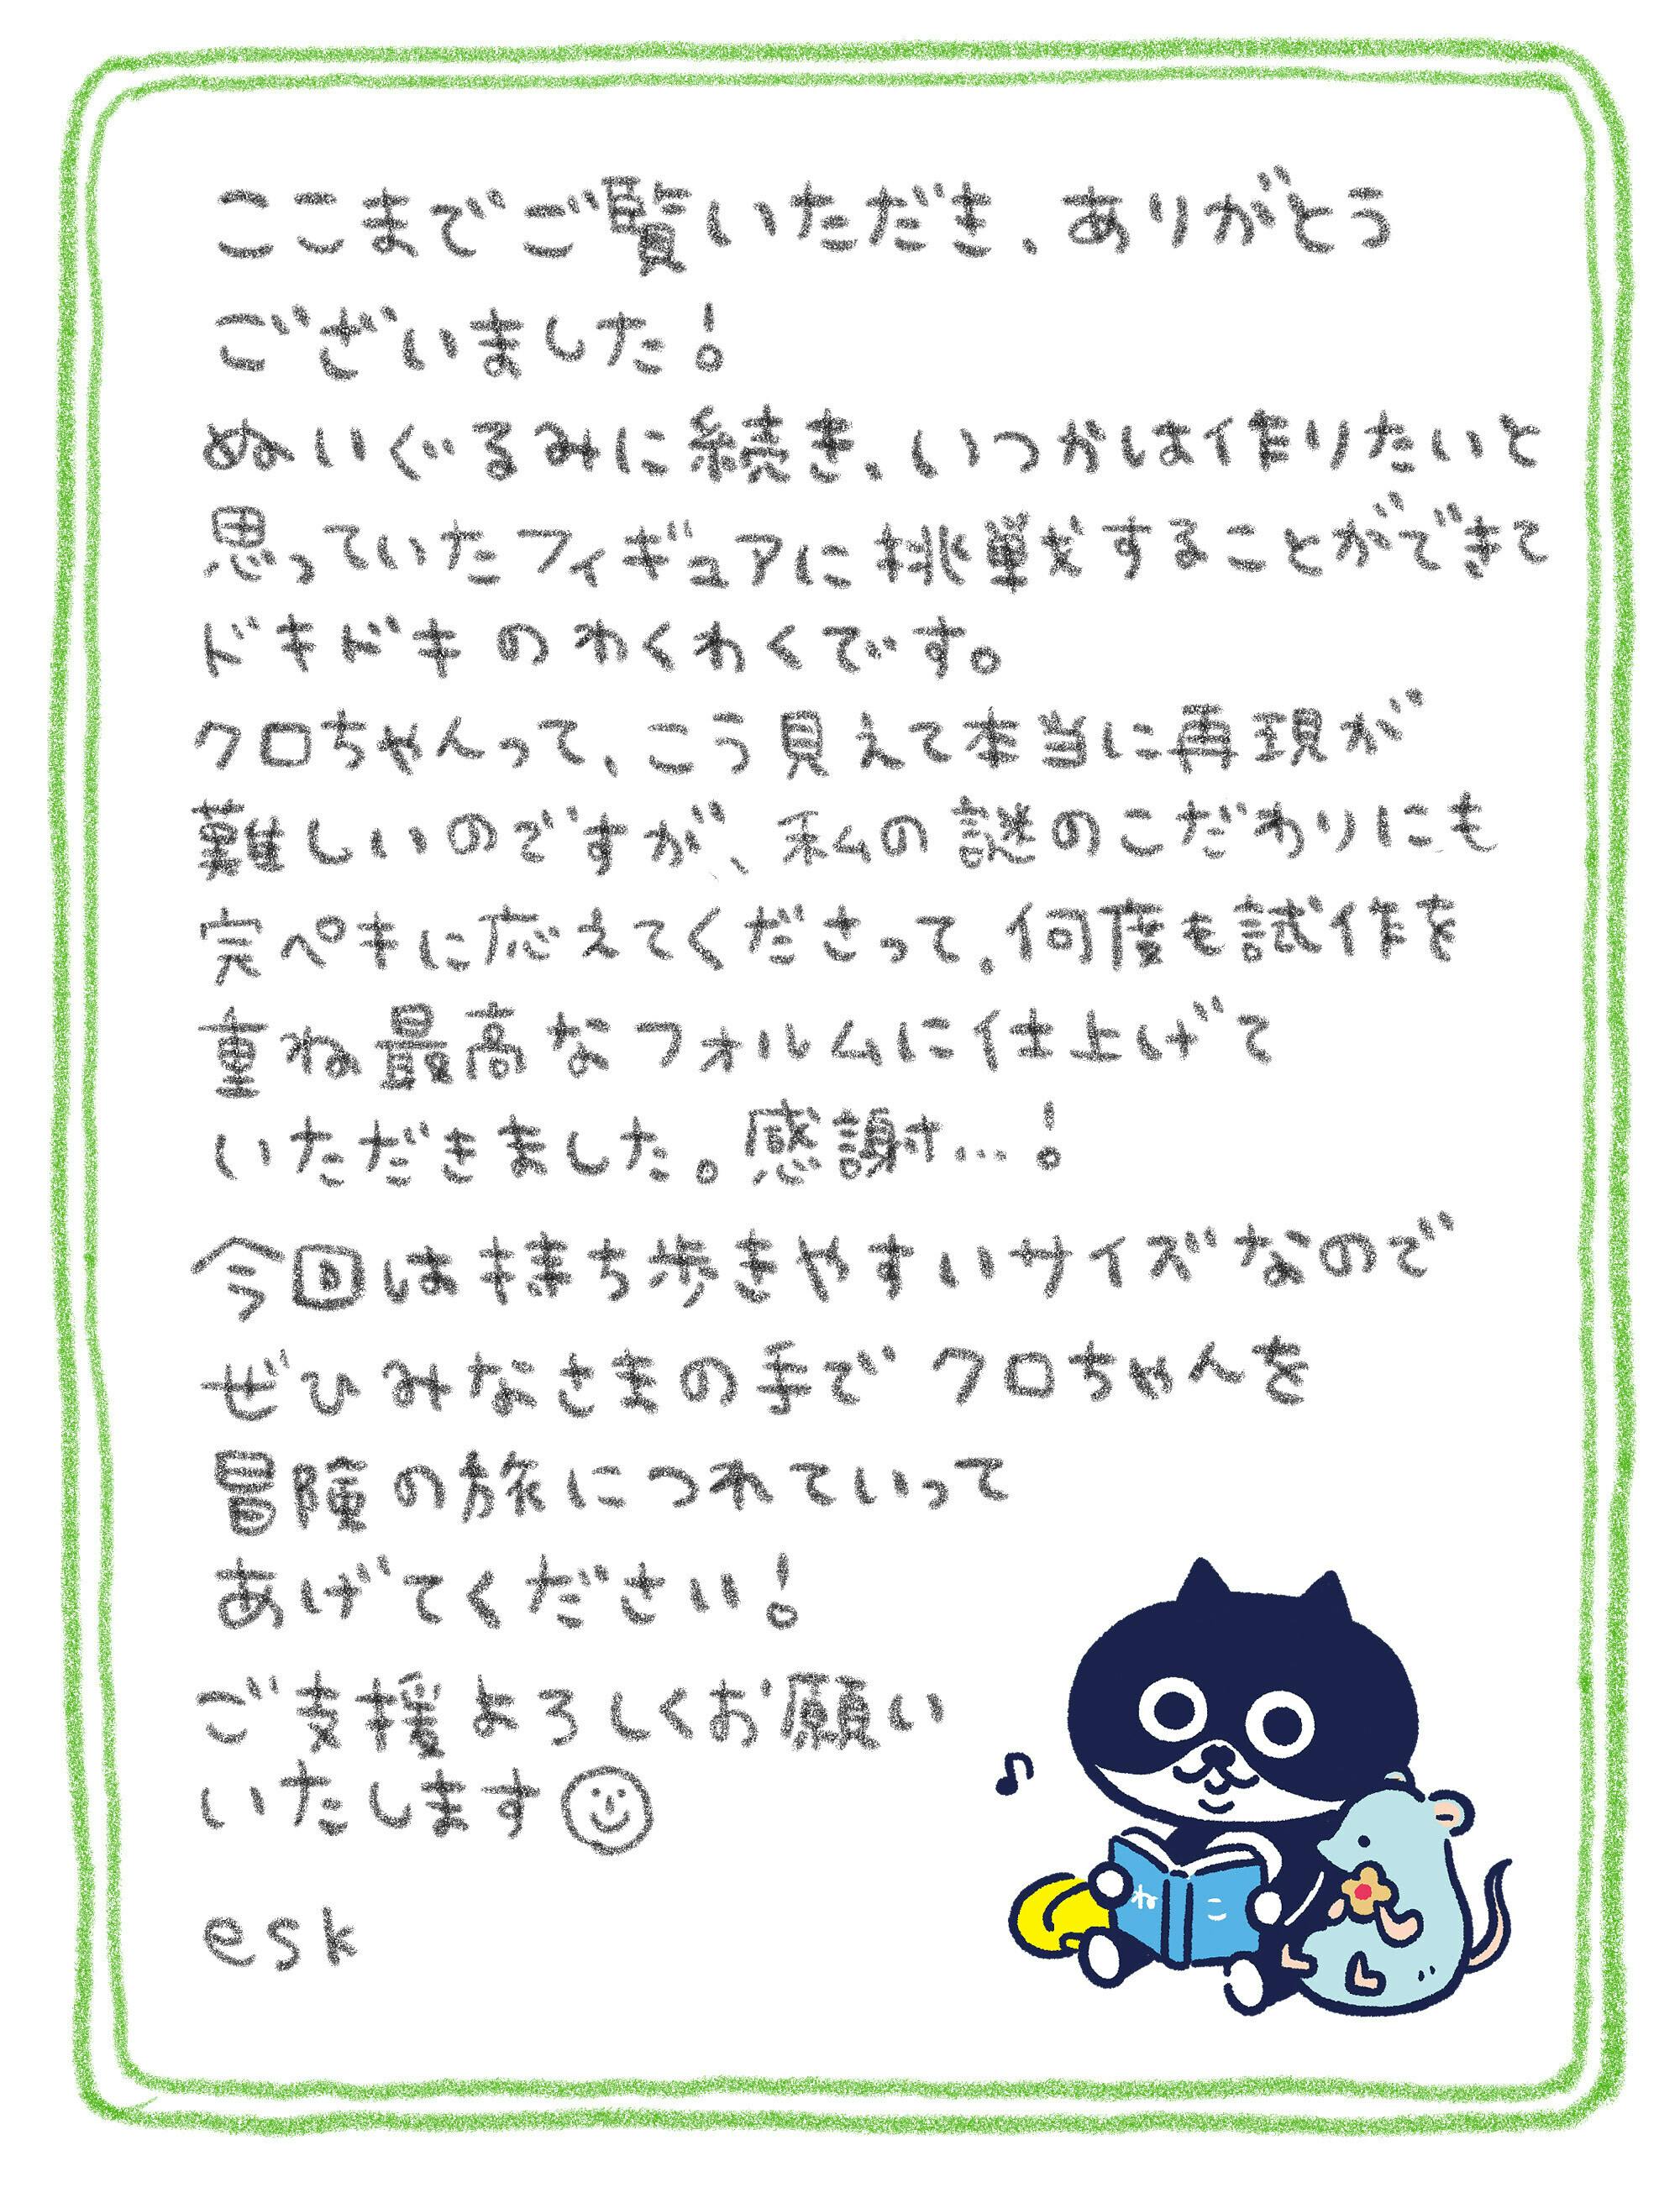 ここまでご覧いただき、ありがとう
ございました!
ぬいぐるみに続き、いつかは作りたいと
思っていたフィギュアに挑戦することができて
ドキドキのわくわくです。
クロちゃんって、こう見えて本当に再現が
難しいのですが、私の謎のこだわりにも
完ペキに応えてくださって、何度も試作を
重ね最高なフォルムに仕上げて
いただきました。感謝…!
今回は持ち歩きやすいサイズなので
ぜひみなさまの手でクロちゃんを
冒険の旅につれていって
あげてください!
ご支援よろしくお願い
いたします
esk
ねこ